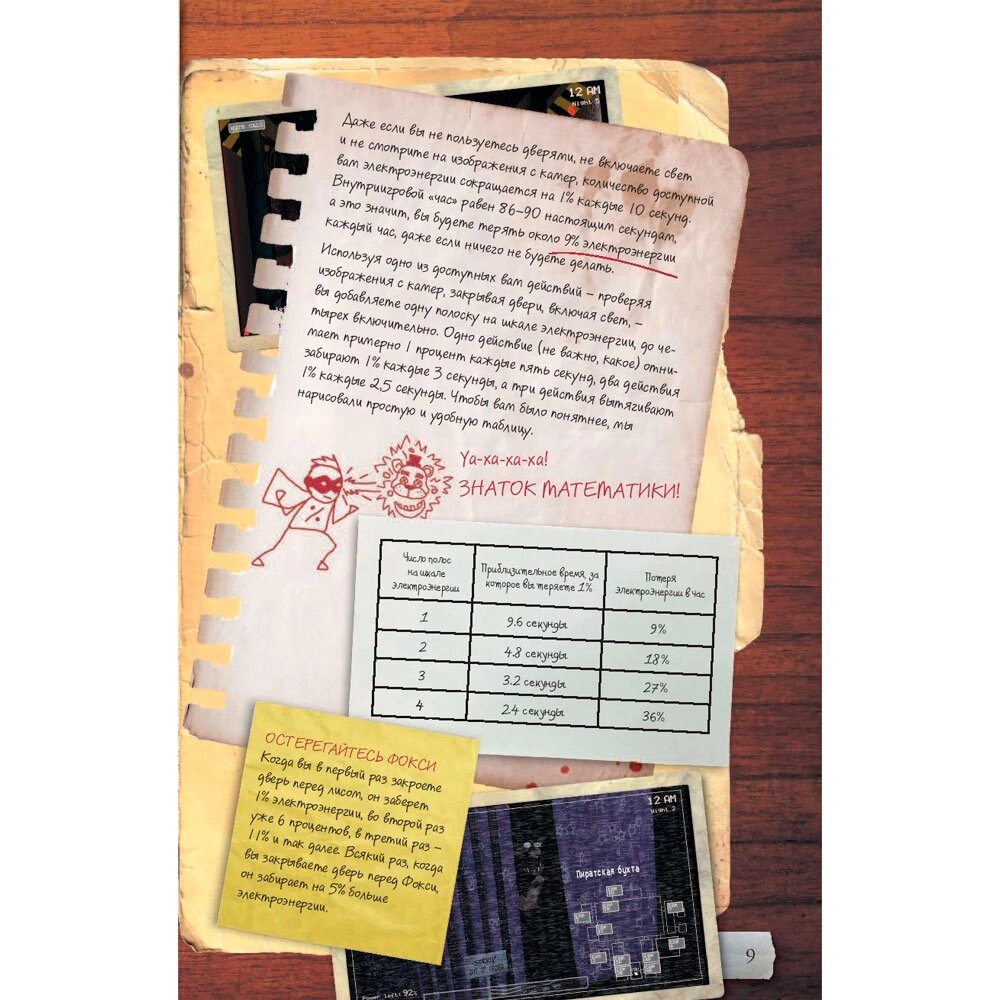 12 AM
Night 5
MUTE CALL
Даже если вы не пользуетесь дверями, не включаете свет
и не смотрите на изображения с камер, количество доступной
вам электроэнергии сокращается на 1% каждые 10 секунд.
Внутриигровой «час» равен 86–90 настоящим секундам,
а это значит, вы будете терять около 9% электроэнергии
каждый час, даже если ничего не будете делать.
Используя одно из доступных вам действий – проверяя
изображения с камер, закрывая двери, включая свет, –
вы добавляете одну полоску на шкале электроэнергии, до че-
тырех включительно. Одно действие (не важно, какое) отни-
мает примерно 1 процент каждые пять секунд, два действия
забирают 1% каждые 3 секунды, а три действия вытягивают
1% каждые 2,5 секунды. Чтобы вам было понятнее, мы
нарисовали простую и удобную таблицу.
Уа-ха-ха-ха!
ЗНАТОК МАТЕМАТИКИ!
%
Число полос
на шкале
электроэнергии
Приблизительное время, за
которое вы теряете 1%
Потеря
электроэнергии в час
1 9.6 секунды 9%
2 4.8 секунды 18%
3 3.2 секунды 27%
4 2.4 секунды 36%
ОСТЕРЕГАЙТЕСЬ ФОКСИ
Когда вы в первый раз закроете
дверь перед лисом, он заберет
1% электроэнергии, во второй раз
уже 6 процентов, в третий раз –
11% и так далее. Всякий раз, когда
вы закрываете дверь перед Фокси,
он забирает на 5% больше
электроэнергии.
12 AM
Night 2
Пиратская бухта
Power left: 92%
9